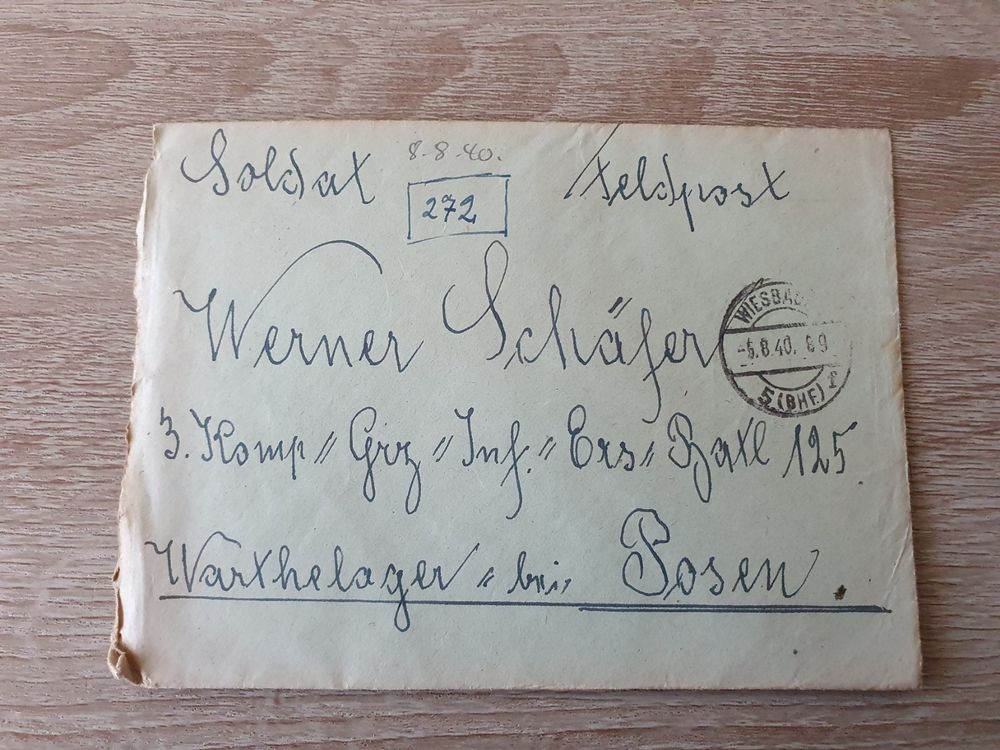 8.8.40.
Soldat 272 Feldpost
Werner Schäfer
WIESBAD
-5.8.40. 89
5 (BHF.) f
3. Komp " Grz " Inf. " Ers " Batl 125
Warthelager " bei " Posen.